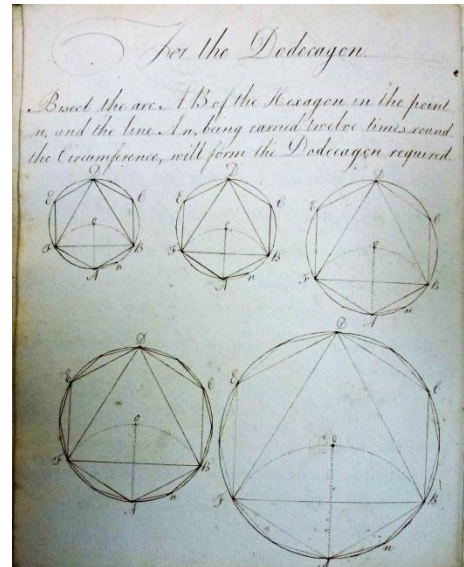 For the Dodecagon.
Bisect the arc AB of the Hexagon in the point
n, and the line An, being carried twelve times round
the Circumference, will form the Dodecagon required.
D D D
E C E C E C
O O O
F B F B F B
A n A n A n
D D
E C E C
O O
F B F B
A n A n